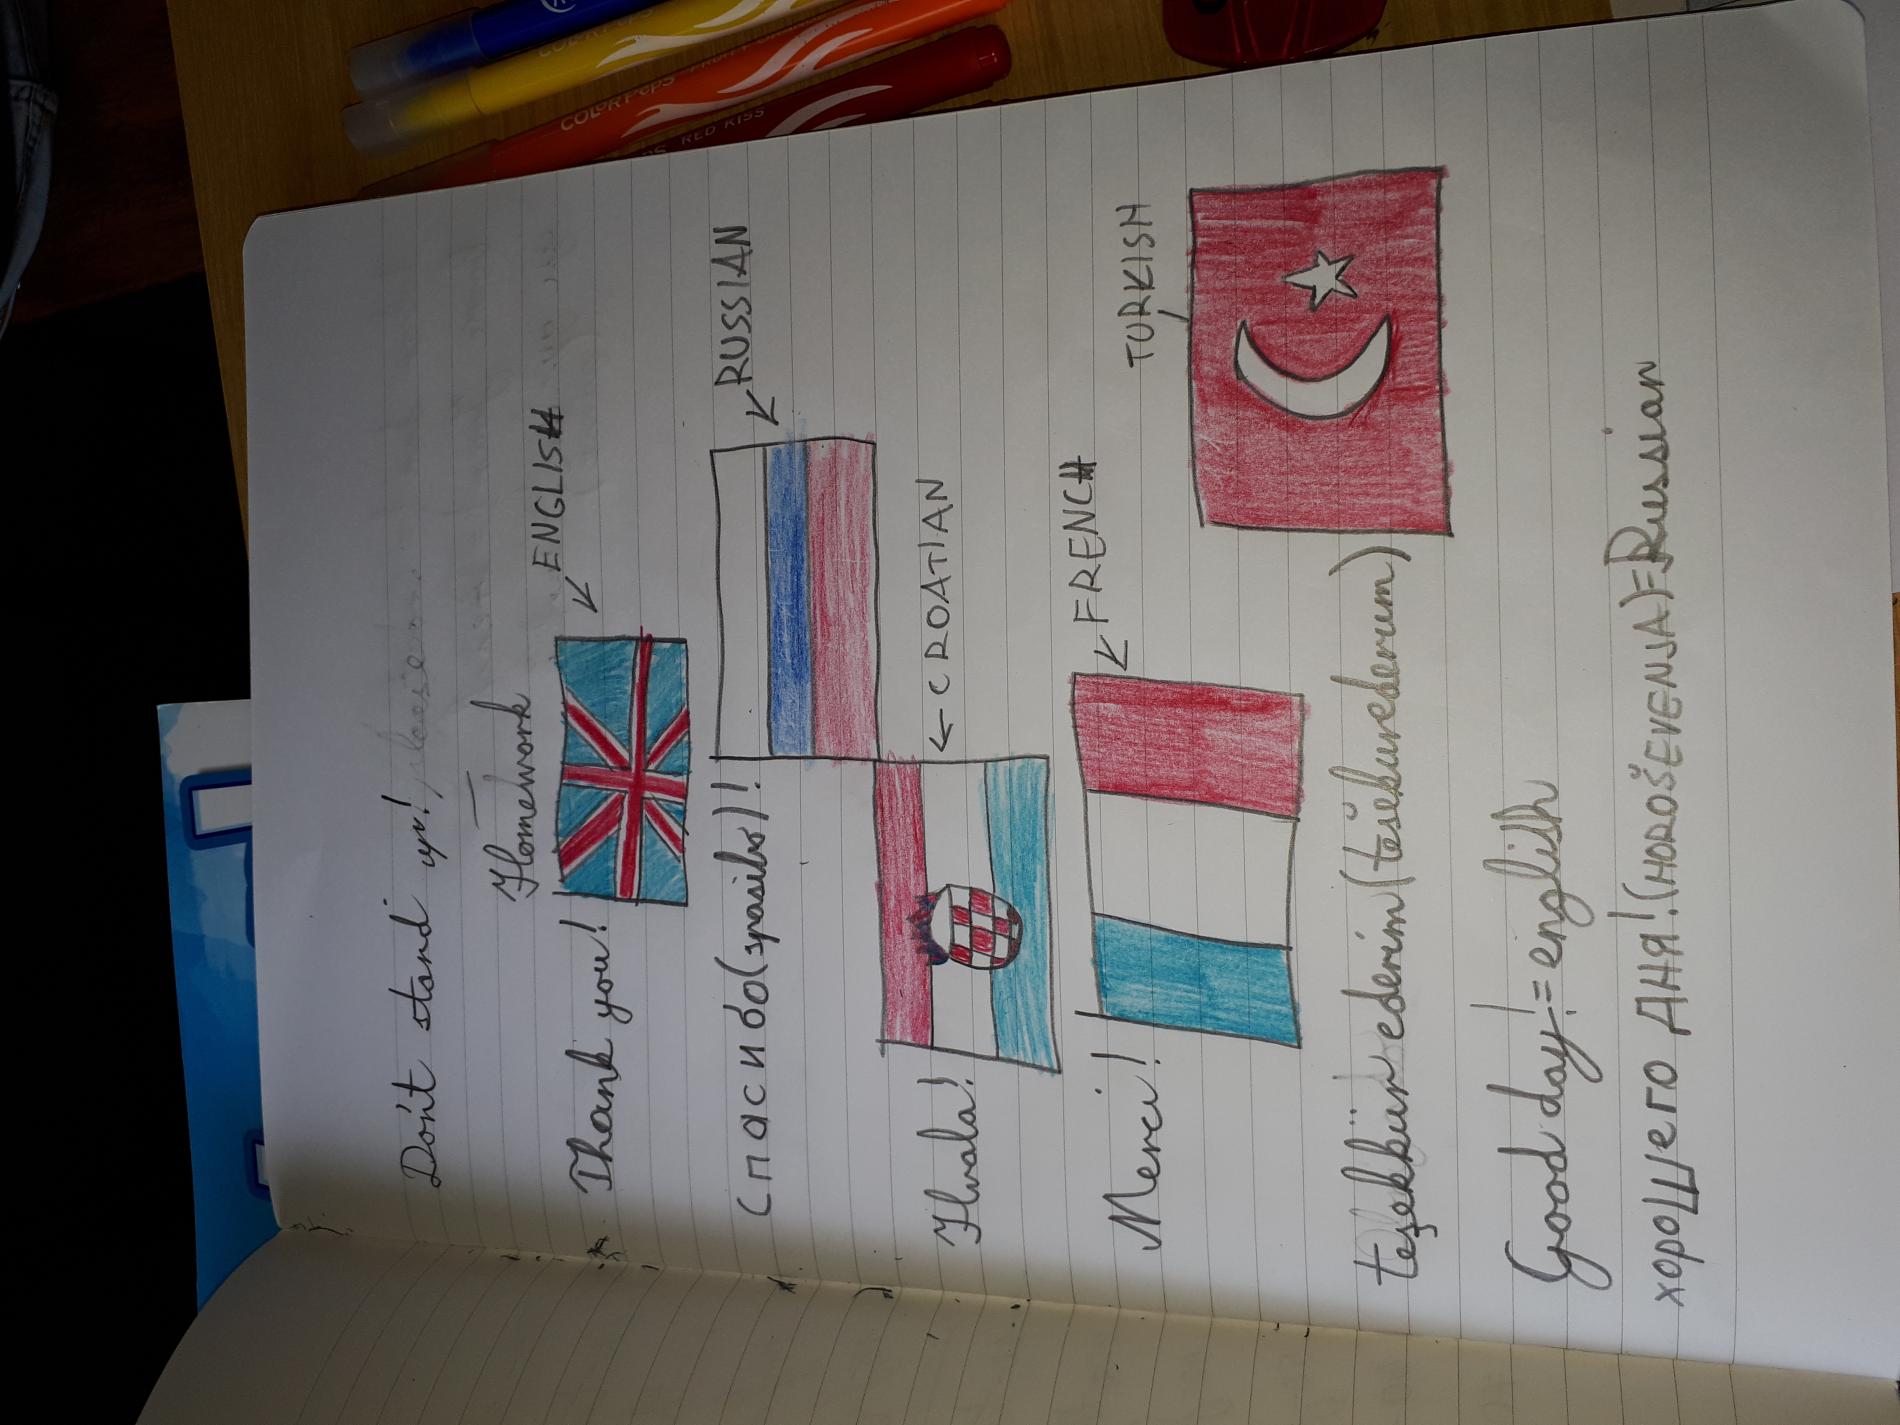 Don't stand up! please.
Homework
Thank you! ENGLISH
Спасибо (spasibo)! RUSSIAN
Hvala! CROATIAN
Merci! FRENCH
teşekkür ederim (tešekurederum) TURKISH
Good day! = english
хорошего дня! (HOROŠEVENJA) = Russian
COLOR PEPS
COLOR PEPS
RED KISS